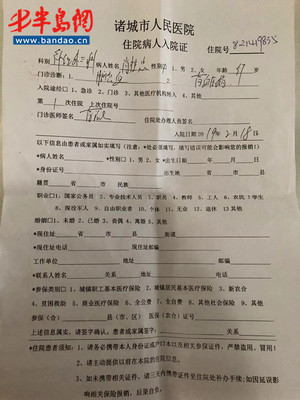 半岛网
www.bandao.cn
诸城市人民医院
住院病人入院证 住院号
科别 病人姓名 性别 1.男 2.女 年龄 岁
门诊诊断:
入院途径 1.急诊 2.门诊 3.其他医疗机构转入 4.其他
第 1 次住院 上次住院号
门诊医师签名 住院处办理人员签名
入院日期 2019年 月18日
以下信息由患者或家属如实填写(注意:*处必须填写,填写错误可能会影响您的报销!)
*病人姓名 *性别 1.男 2.女 *出生日期 年 月 日
*身份证号 出生地 省 市 县
籍贯 省 市 民族
职业 1.国家公务员 2.专业技术人员 3.职员 4.教师 5.工人 6.农民 7.学生
8.现役军人 9.自由职业 10.个体 11.无业 12.退休 13.其他
婚姻 1.未婚 2.已婚 3.丧偶 4.离婚 5.其他
*现住址 省 市 县 街道
*现住址电话 现住址邮编
工作单位 地址 电话
户口地址 邮编
*联系人姓名 关系 电话
*参保类别 1.城镇职工基本医疗保险 2.城镇居民基本医疗保险 3.新农合
4.贫困救助 5.商业医疗保险 6.全公费 7.全自费 8.其他社会保险 9.其他
参保(合) 县(市、区) 医保(合)证号
上述信息属实,请签字确认,患者或家属签字: 关系:
*住院患者须知:1.请务必携带本人身份证或户口本以及相关参保证件,严禁盗用,冒用!
2.请主动提供以前在本院的住院信息。
3.如未携带相关证件,请三天内携带证件至住院处补办手续;如因延误影
响相关保险报销,后果自负。